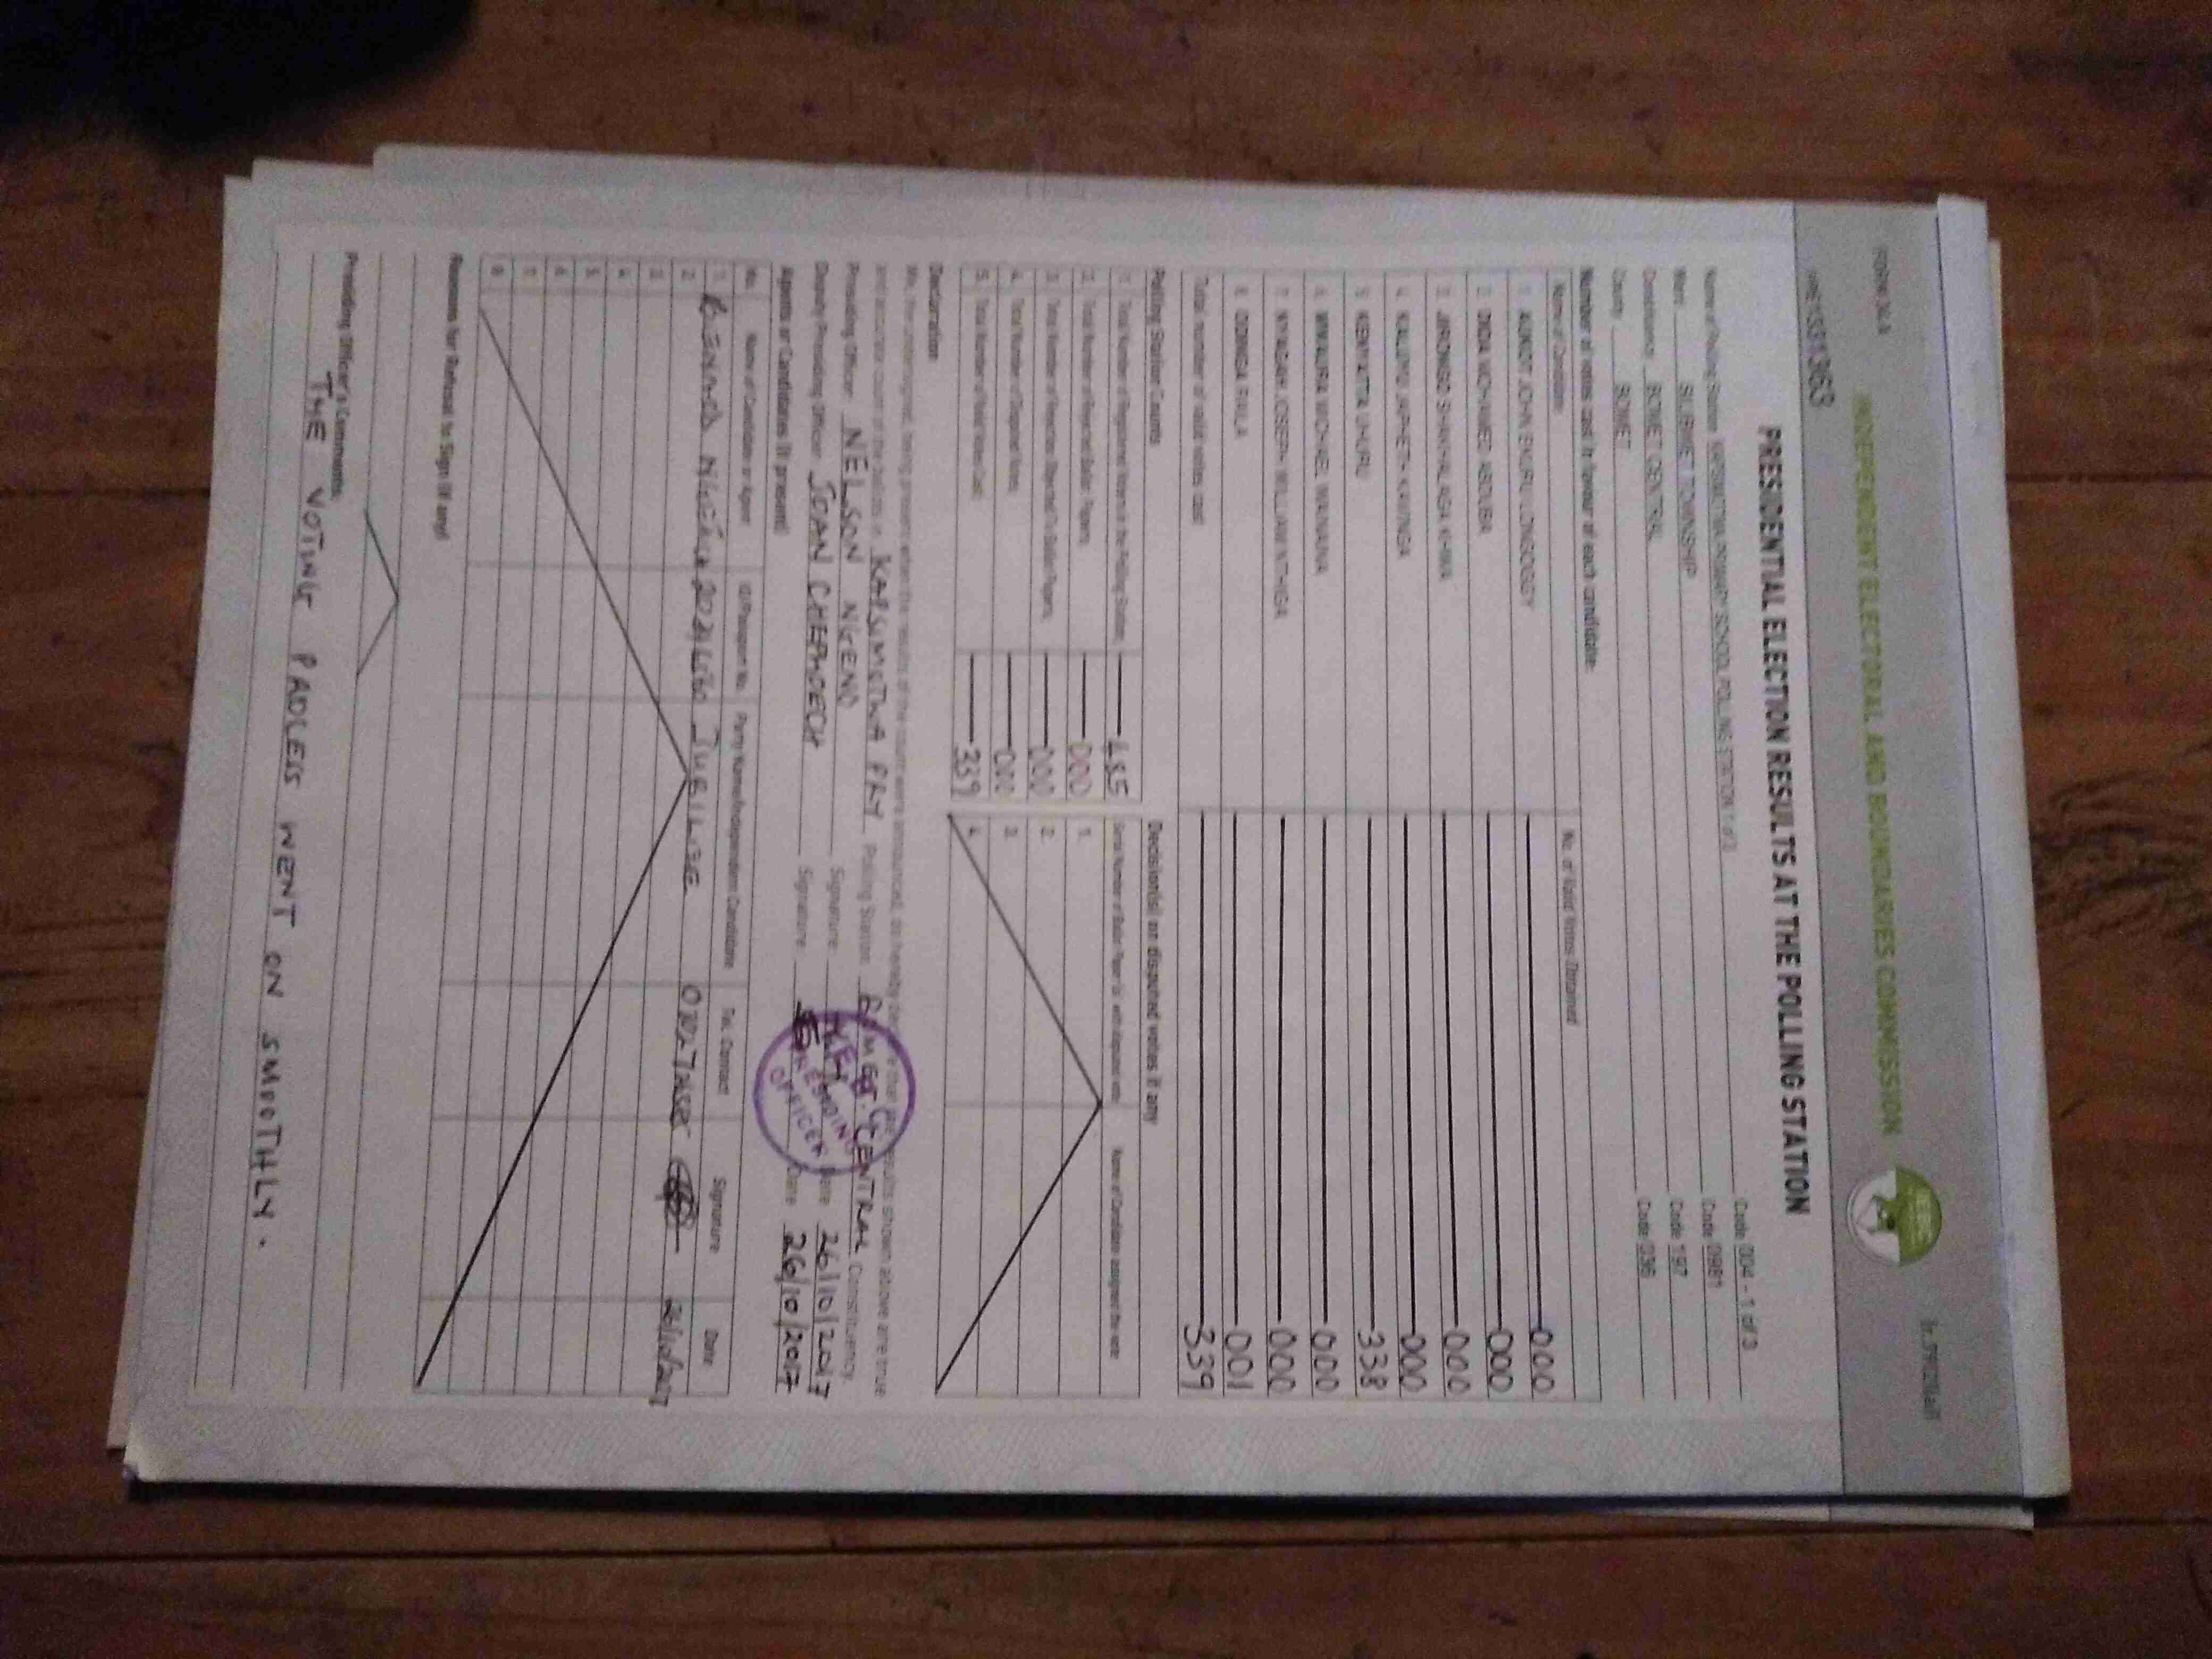 FORM 34A
INDEPENDENT ELECTORAL AND BOUNDARIES COMMISSION
IEBC
PRESIDENTIAL ELECTION RESULTS AT THE POLLING STATION
Name of Polling Station KAPSIMOTWA PRIMARY SCHOOL POLLING STATION 1 of 3 Code 004 - 1 of 3
Ward SILIBWET TOWNSHIP Code 0981
Constituency BOMET CENTRAL Code 197
County BOMET Code 036
Number of votes cast in favour of each candidate:
Name of Candidate No. of Valid Votes Obtained
1. AUKOT JOHN EKURU LONGOGGY 000
2. DIDA MOHAMED ABDUBA 000
3. JIRONGO SHAKHALAGA KHWA 000
4. KALUYU JAPHETH KAVINGA 000
5. KENYATTA UHURU 338
6. MWAURA MICHAEL WAINAINA 000
7. NYAGAH JOSEPH WILLIAM NTHIGA 000
8. ODINGA RAILA 001
Total number of valid votes cast 339
Polling Station Counts
1. Total Number of Registered Voters in the Polling Station
2. Total Number of Rejected Ballot Papers 000
3. Total Number of Rejection Objected To Ballot Papers 000
4. Total Number of Disputed Votes 000
5. Total Number of Valid Votes Cast 339
Decision(s) on disputed votes if any
Serial Number of Ballot Paper (s) with disputed vote Name of Candidate assigned the vote
1.
2.
3.
4.
Declaration
We, the undersigned, being present when the results of the count were announced, do hereby declare that the results shown above are true
and accurate count of the ballots in KAPSIMOTWA PRY Polling Station BOMET CENTRAL Constituency.
Presiding Officer NELSON NGENO Signature Date 26/10/2017
Deputy Presiding Officer JOAN CHEPKOECH Signature Date 26/10/2017
PRESIDING OFFICER
Agents or Candidates (if present)
No. Name of Candidate or Agent ID/Passport No. Party Name/Independent Candidate Tel. Contact Signature Date
1. JUBILEE 26/10/2017
2
3
4
5
6
7
8
Reasons for Refusal to Sign (if any)
Presiding Officer's Comments.
THE VOTING PADLESS WENT ON SMOOTHLY.